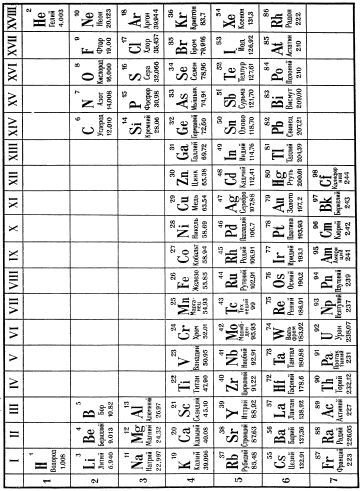 I II III IV V VI VII VIII IX X XI XII XIII XIV XV XVI XVII XVIII
1
1 H 2 He
Водород Гелий
1.008 4.003
2
3 Li 4 Be 5 B 6 C 7 N 8 O 9 F 10 Ne
Литий Бериллий Бор Углерод Азот Кислород Фтор Неон
6.940 9.013 10.82 12.010 14.008 16.000 19.00 20.183
3
11 Na 12 Mg 13 Al 14 Si 15 P 16 S 17 Cl 18 Ar
Натрий Магний Алюминий Кремний Фосфор Сера Хлор Аргон
22.997 24.32 26.97 28.06 30.98 32.066 35.457 39.944
4
19 K 20 Ca 21 Sc 22 Ti 23 V 24 Cr 25 Mn 26 Fe 27 Co 28 Ni 29 Cu 30 Zn 31 Ga 32 Ge 33 As 34 Se 35 Br 36 Kr
Калий Кальций Скандий Титан Ванадий Хром Марганец Железо Кобальт Никель Медь Цинк Галлий Германий Мышьяк Селен Бром Криптон
39.096 40.08 45.10 47.90 50.95 52.01 54.93 55.85 58.94 58.69 63.54 65.38 69.72 72.60 74.91 78.96 79.916 83.7
5
37 Rb 38 Sr 39 Y 40 Zr 41 Nb 42 Mo 43 Tc 44 Ru 45 Rh 46 Pd 47 Ag 48 Cd 49 In 50 Sn 51 Sb 52 Te 53 I 54 Xe
Рубидий Стронций Иттрий Цирконий Ниобий Молибден Технеций Рутений Родий Палладий Серебро Кадмий Индий Олово Сурьма Теллур Иод Ксенон
85.48 87.63 88.92 91.22 92.91 95.95 99 101.7 102.91 106.7 107.88 112.41 114.76 118.70 121.76 127.61 126.92 131.3
6
55 Cs 56 Ba 57 La 72 Hf 73 Ta 74 W 75 Re 76 Os 77 Ir 78 Pt 79 Au 80 Hg 81 Tl 82 Pb 83 Bi 84 Po 85 At 86 Rn
Цезий Барий Лантан Гафний Тантал Вольфрам Рений Осмий Иридий Платина Золото Ртуть Таллий Свинец Висмут Полоний Астатин Радон
132.91 137.36 138.92 178.6 180.88 183.92 186.31 190.2 193.1 195.23 197.2 200.61 204.39 207.21 209.00 210 210 222
7
87 Fr 88 Ra 89 Ac 90 Th 91 Pa 92 U 93 Np 94 Pu 95 Am 96 Cm 97 Bk 98 Cf
Франций Радий Актиний Торий Протактиний Уран Нептуний Плутоний Америций Кюрий Берклий Калифорний
223 226.05 227 232.12 231 238.07 237 239 241 242 243 244